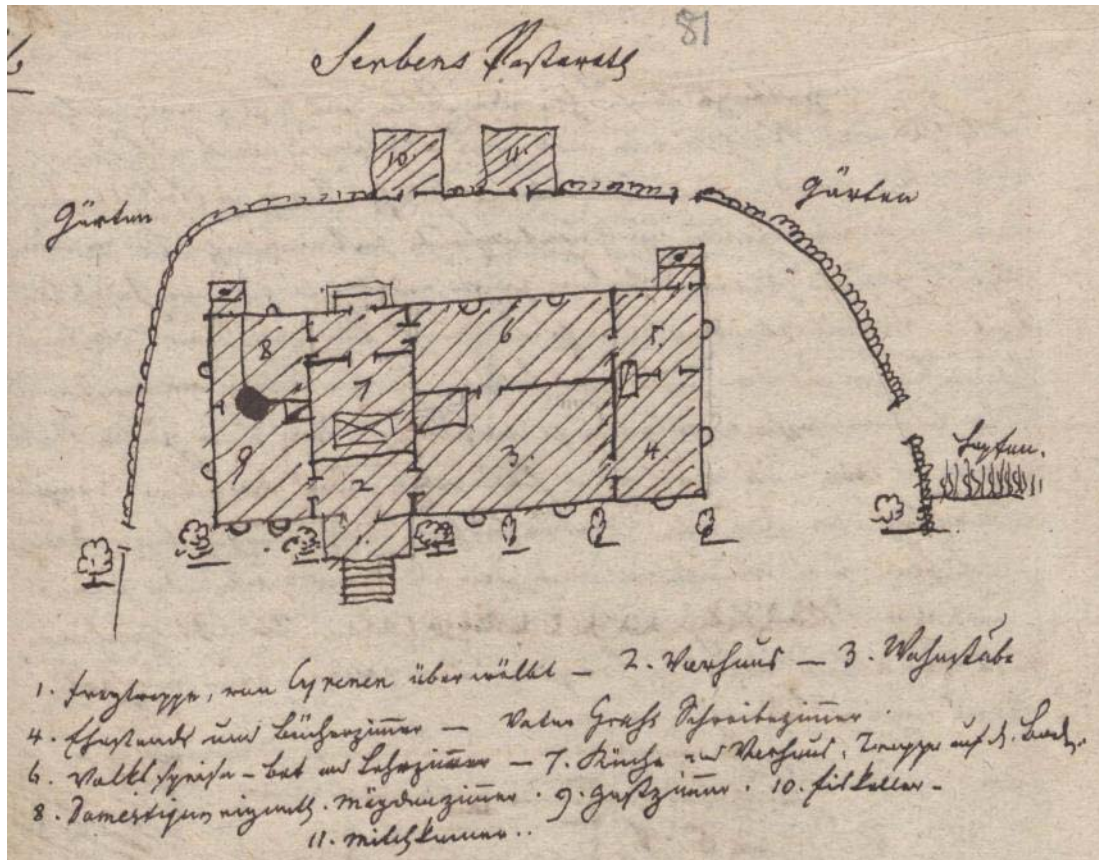 81
Serbens Pastorath
10.
11.
Gärten
Gärten
8
6
5.
7
9
3.
4.
2
1.
Hopfen.
1. Freytreppe, von Cyrenen überwölbt — 2. Vorhaus — 3. Wohnstube
4. Ehestands und Bücherzimmer — Vater Grahs Schreibezimmer.
6. Volks speise - bet und Lehrzimmer — 7. Küche und Vorhaus, Treppe auf d.
8. Domestiquen Mägdezimmer. 9. Gastzimmer. 10. Eiskeller -
11. Milchkammer..